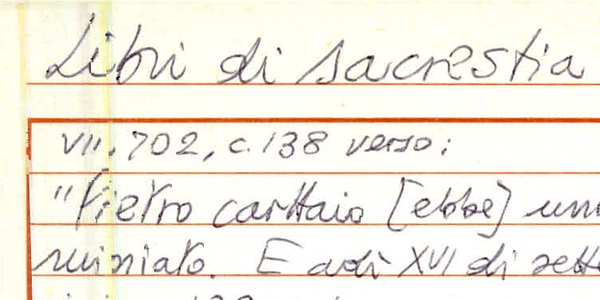 Libri di sacrestia
VII.702, c.138 verso:
"Pietro carttaio [ebbe] uno
miniato. E adì XVI di sette